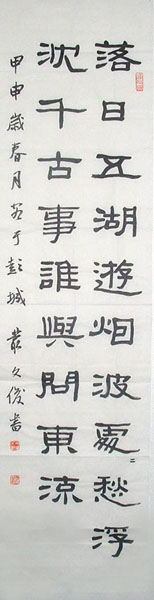 落日五湖遊烟波處〻愁浮
沈千古事誰與問東流
甲申歲春月于彭城俊書